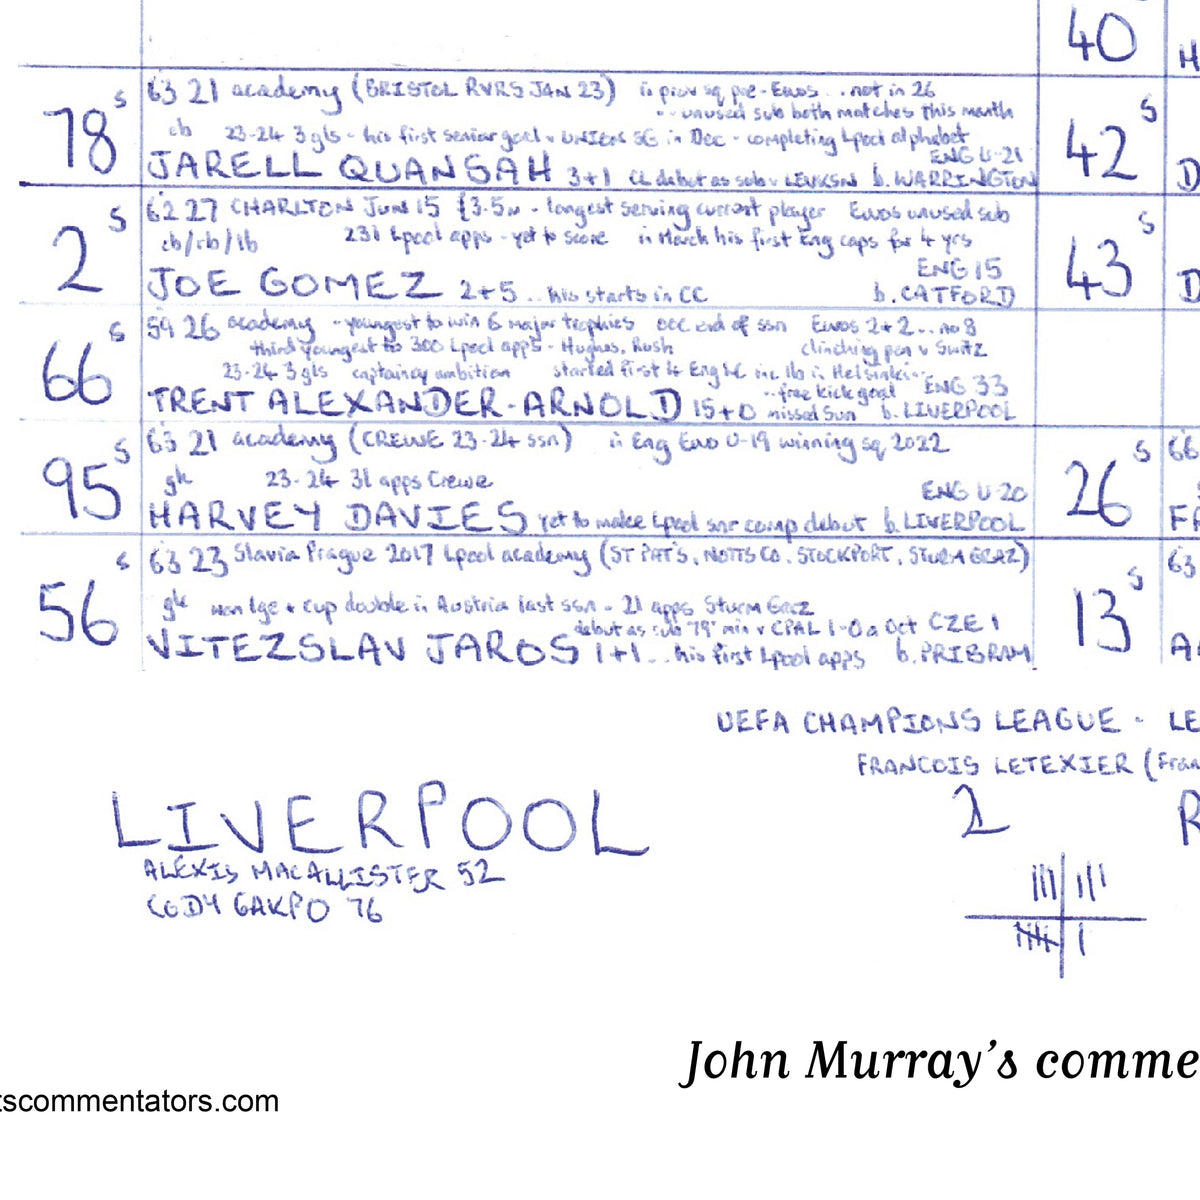 40
H
78 s
63 21 academy (BRISTOL RVRS JAN 23) in prov sq pre-Euros .. not in 26
.. unused sub both matches this month
cb 23-24 3 gls - his first senior goal v UNION SG in Dec - completing Lpool alphabet
ENG U-21
JARELL QUANSAH 3+1 CL debut as sub v LEVKSN b. WARRINGTON
42 s
D
2 s
62 27 CHARLTON JUN 15 £3.5m - longest serving current player Euros unused sub
cb/rb/lb 231 Lpool apps - yet to score in March his first Eng caps for 4 yrs
ENG 15
JOE GOMEZ 2+5 .. his starts in CC b. CATFORD
43 s
D
66 s
59 26 academy - youngest to win 6 major trophies ooc end of ssn Euros 2+2 .. no 8
third youngest to 300 Lpool apps - Hughes, Rush clinching pen v Switz
23-24 3 gls captaincy ambition started first 4 Eng NL inc lb in Helsinki ..
.. free kick goal ENG 33
TRENT ALEXANDER-ARNOLD 15+0 missed Sun b. LIVERPOOL
95 s
63 21 academy (CREWE 23-24 ssn) in Eng Euro U-19 winning sq 2022
gk 23-24 31 apps Crewe
ENG U-20
HARVEY DAVIES yet to make Lpool snr comp debut b. LIVERPOOL
26 s
66
FA
56 s
63 23 Slavia Prague 2017 Lpool academy (ST PAT'S, NOTTS CO, STOCKPORT, STURM GRAZ)
gk won lge + cup double in Austria last ssn - 21 apps Sturm Graz
debut as sub 79' min v CPAL 1-0 a Oct CZE 1
VITEZSLAV JAROS 1+1 .. his first Lpool apps b. PRIBRAM
13 s
63
A
UEFA CHAMPIONS LEAGUE - LE
FRANCOIS LETEXIER (Fran
LIVERPOOL
2
R
ALEXIS MACALLISTER 52
CODY GAKPO 76
John Murray's comme
tscommentators.com